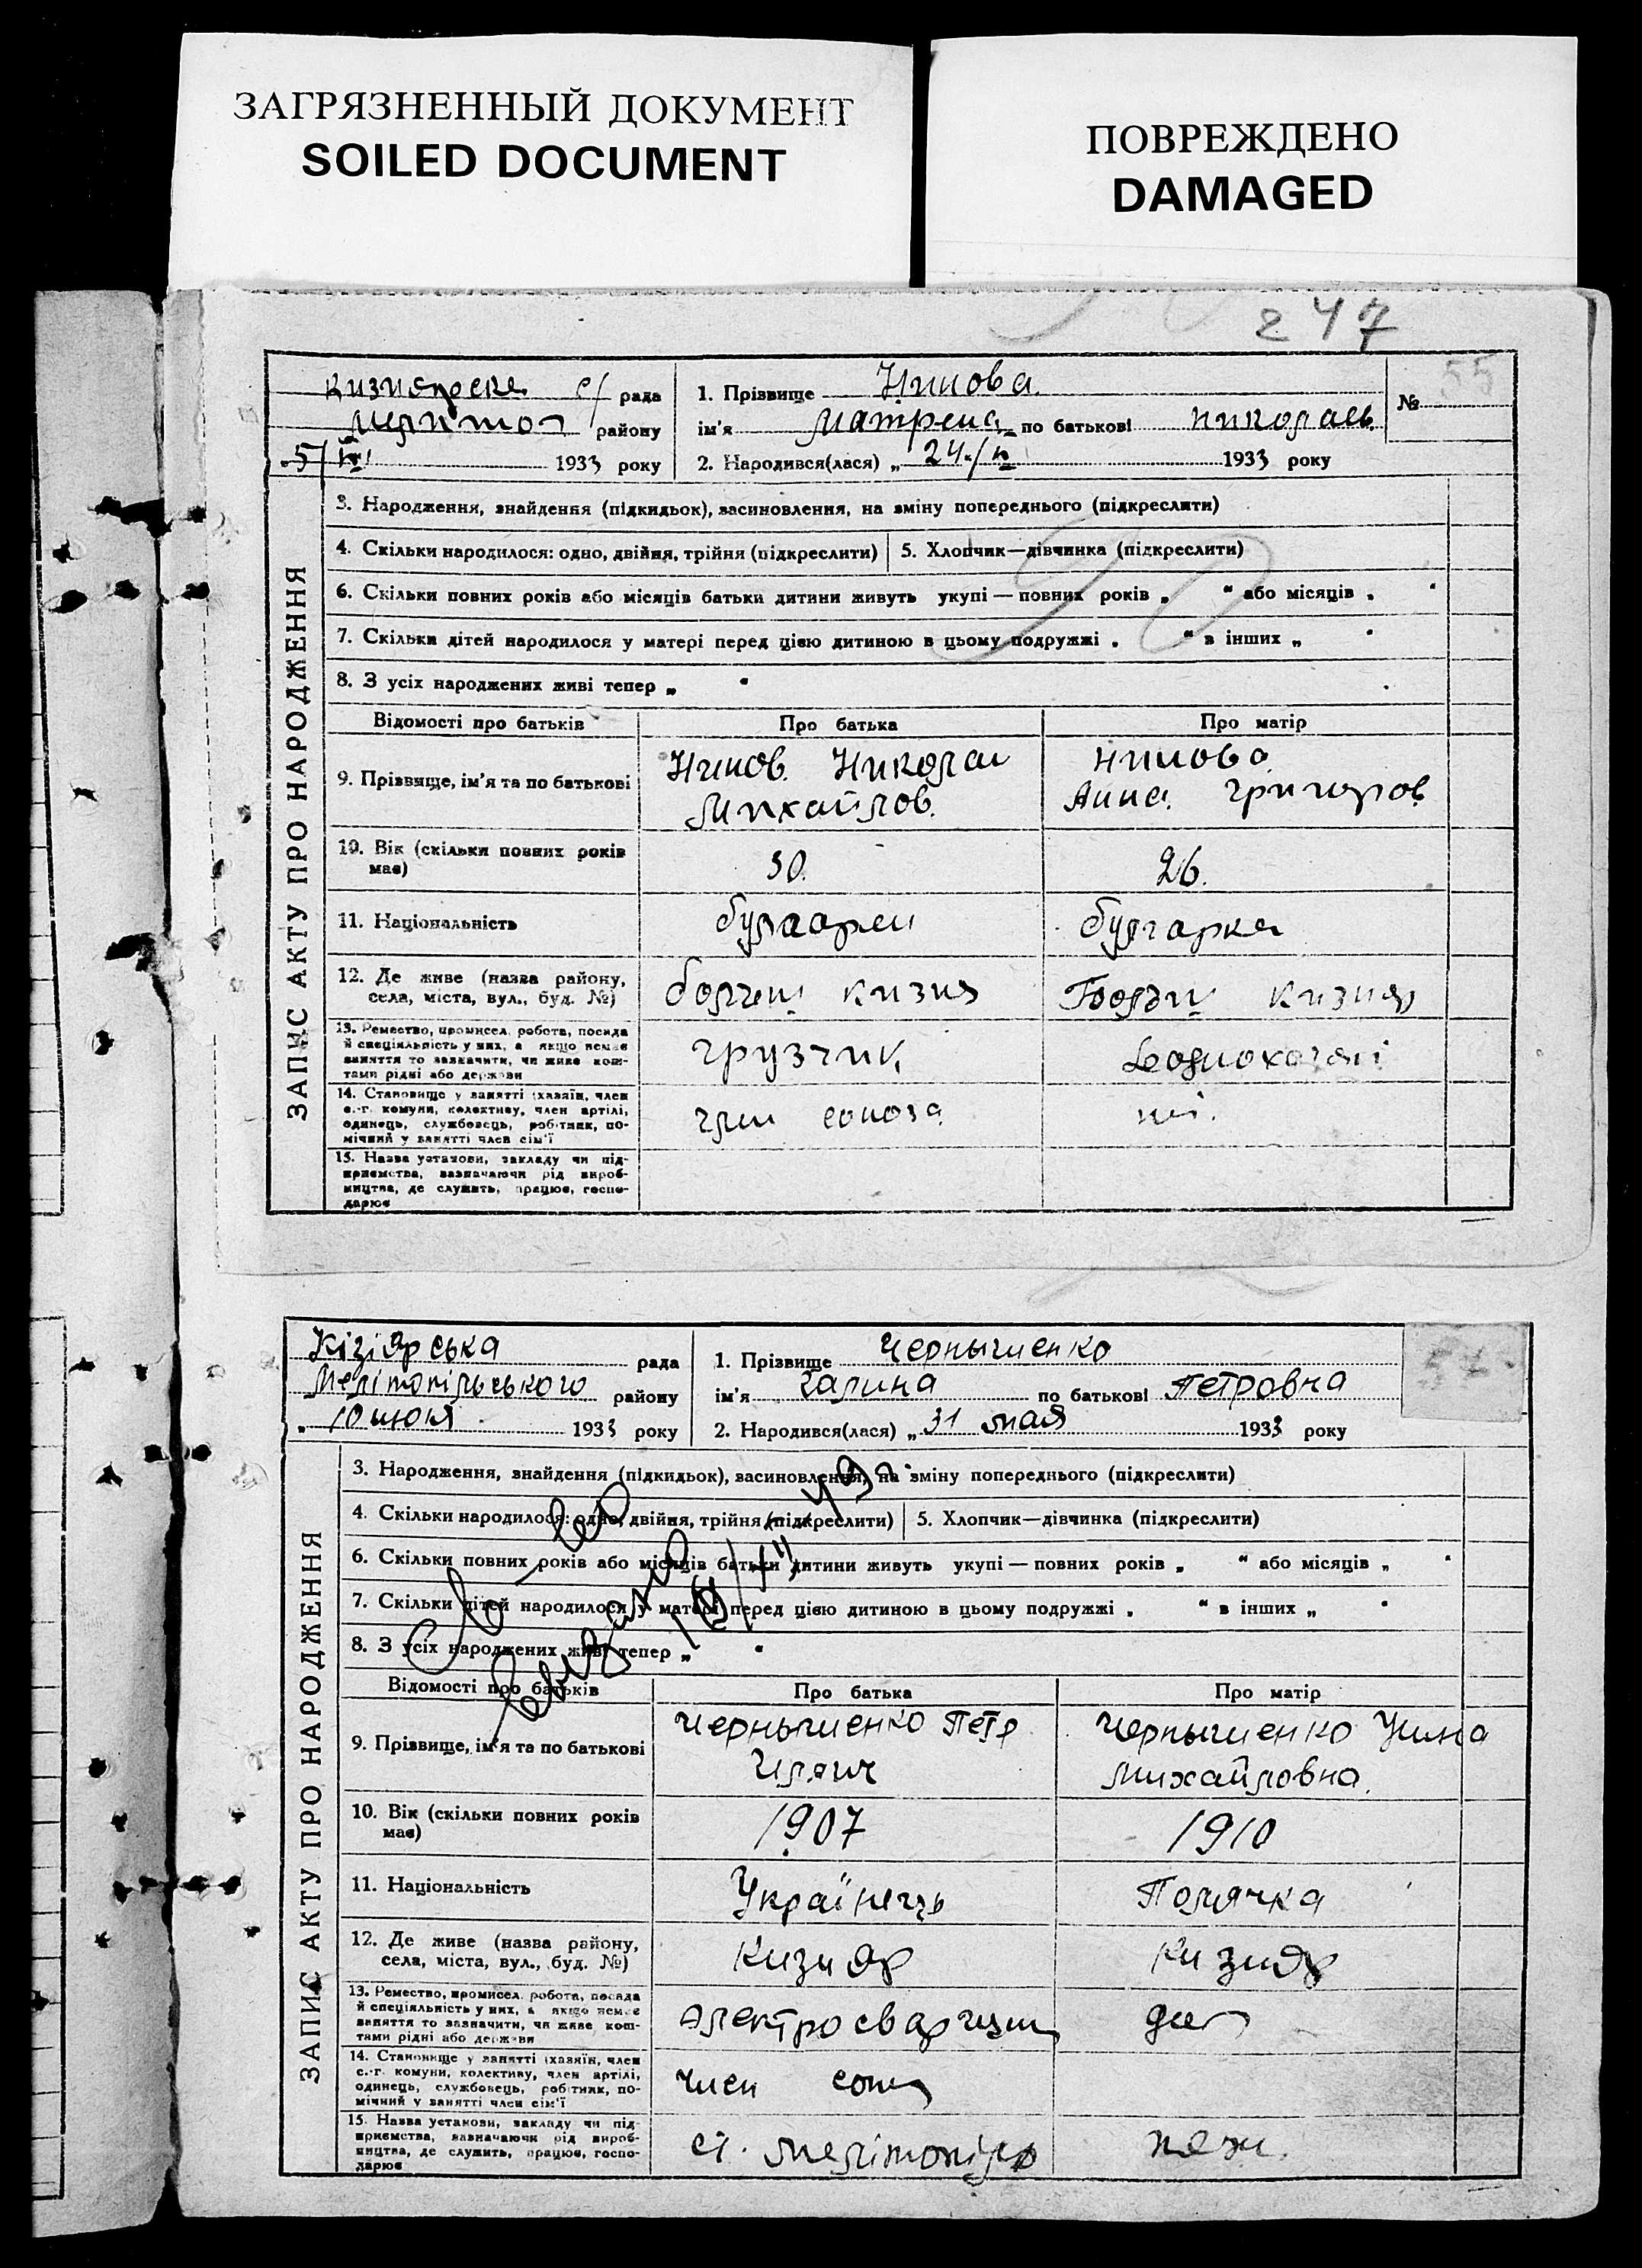 ЗАГРЯЗНЕННЫЙ ДОКУМЕНТ
SOILED DOCUMENT
ПОВРЕЖДЕНО
DAMAGED
247
рада
району
1933 року
1. Прізвище Нинова
ім'я Матрена по батькові Николаев.
2. Народився(лася) „ 24/ 1933 року
№ 55
ЗАПИС АКТУ ПРО НАРОДЖЕННЯ
3. Народження, знайдення (підкидьок), засиновлення, на зміну попереднього (підкреслити)
4. Скільки народилося: одно, двійня, трійня (підкреслити) 5. Хлопчик—дівчинка (підкреслити)
6. Скільки повних років або місяців батьки дитини живуть укупі — повних років „ “ або місяців „ “
7. Скільки дітей народилося у матері перед цією дитиною в цьому подружжі „ “ в інших „ “
8. З усіх народжених живі тепер „ “
Відомості про батьків Про батька Про матір
9. Прізвище, ім'я та по батькові
Нинов Николай
Михайлов.
Нинова
Анна Григоров
10. Вік (скільки повних років має)
30.
26.
11. Національність
булгарка
12. Де живе (назва району,
села, міста, вул., буд. №)
13. Ремество, промисел, робота, посада
й спеціяльність у них, а якщо немає
заняття то зазначити, чи живе кош-
тами рідні або держави
грузчик
14. Становище у занятті (хазяїн, член
с.-г. комуни, колективу, член артілі,
одинець, службовець, робітник, по-
мічний у занятті член сім'ї
член союза
15. Назва установи, закладу чи під-
приємства, зазначаючи рід вироб-
ництва, де служить, працює, госпо-
дарює
Кізіярська рада
Мелітопільського району
„ 10 июня 1933 року
1. Прізвище Чернышенко
ім'я Галина по батькові Петровна
2. Народився(лася) „ 31 мая 1933 року
ЗАПИС АКТУ ПРО НАРОДЖЕННЯ
3. Народження, знайдення (підкидьок), засиновлення, на зміну попереднього (підкреслити)
4. Скільки народилося: одно, двійня, трійня (підкреслити) 5. Хлопчик—дівчинка (підкреслити)
6. Скільки повних років або місяців батьки дитини живуть укупі — повних років „ “ або місяців „ “
7. Скільки дітей народилося у матері перед цією дитиною в цьому подружжі „ “ в інших „ “
8. З усіх народжених живі тепер „ “
Відомості про батьків Про батька Про матір
9. Прізвище, ім'я та по батькові
Чернышенко Петр
Ильич
Чернышенко
Михайловна.
10. Вік (скільки повних років має)
1907
1910
11. Національність
Українець
Полячка
12. Де живе (назва району,
села, міста, вул., буд. №)
Кизияр
Кизияр
13. Ремество, промисел, робота, посада
й спеціяльність у них, а якщо немає
заняття то зазначити, чи живе кош-
тами рідні або держави
Электросварщик
14. Становище у занятті (хазяїн, член
с.-г. комуни, колективу, член артілі,
одинець, службовець, робітник, по-
мічний у занятті член сім'ї
член
15. Назва установи, закладу чи під-
приємства, зазначаючи рід вироб-
ництва, де служить, працює, госпо-
дарює
ст. Мелітопіль